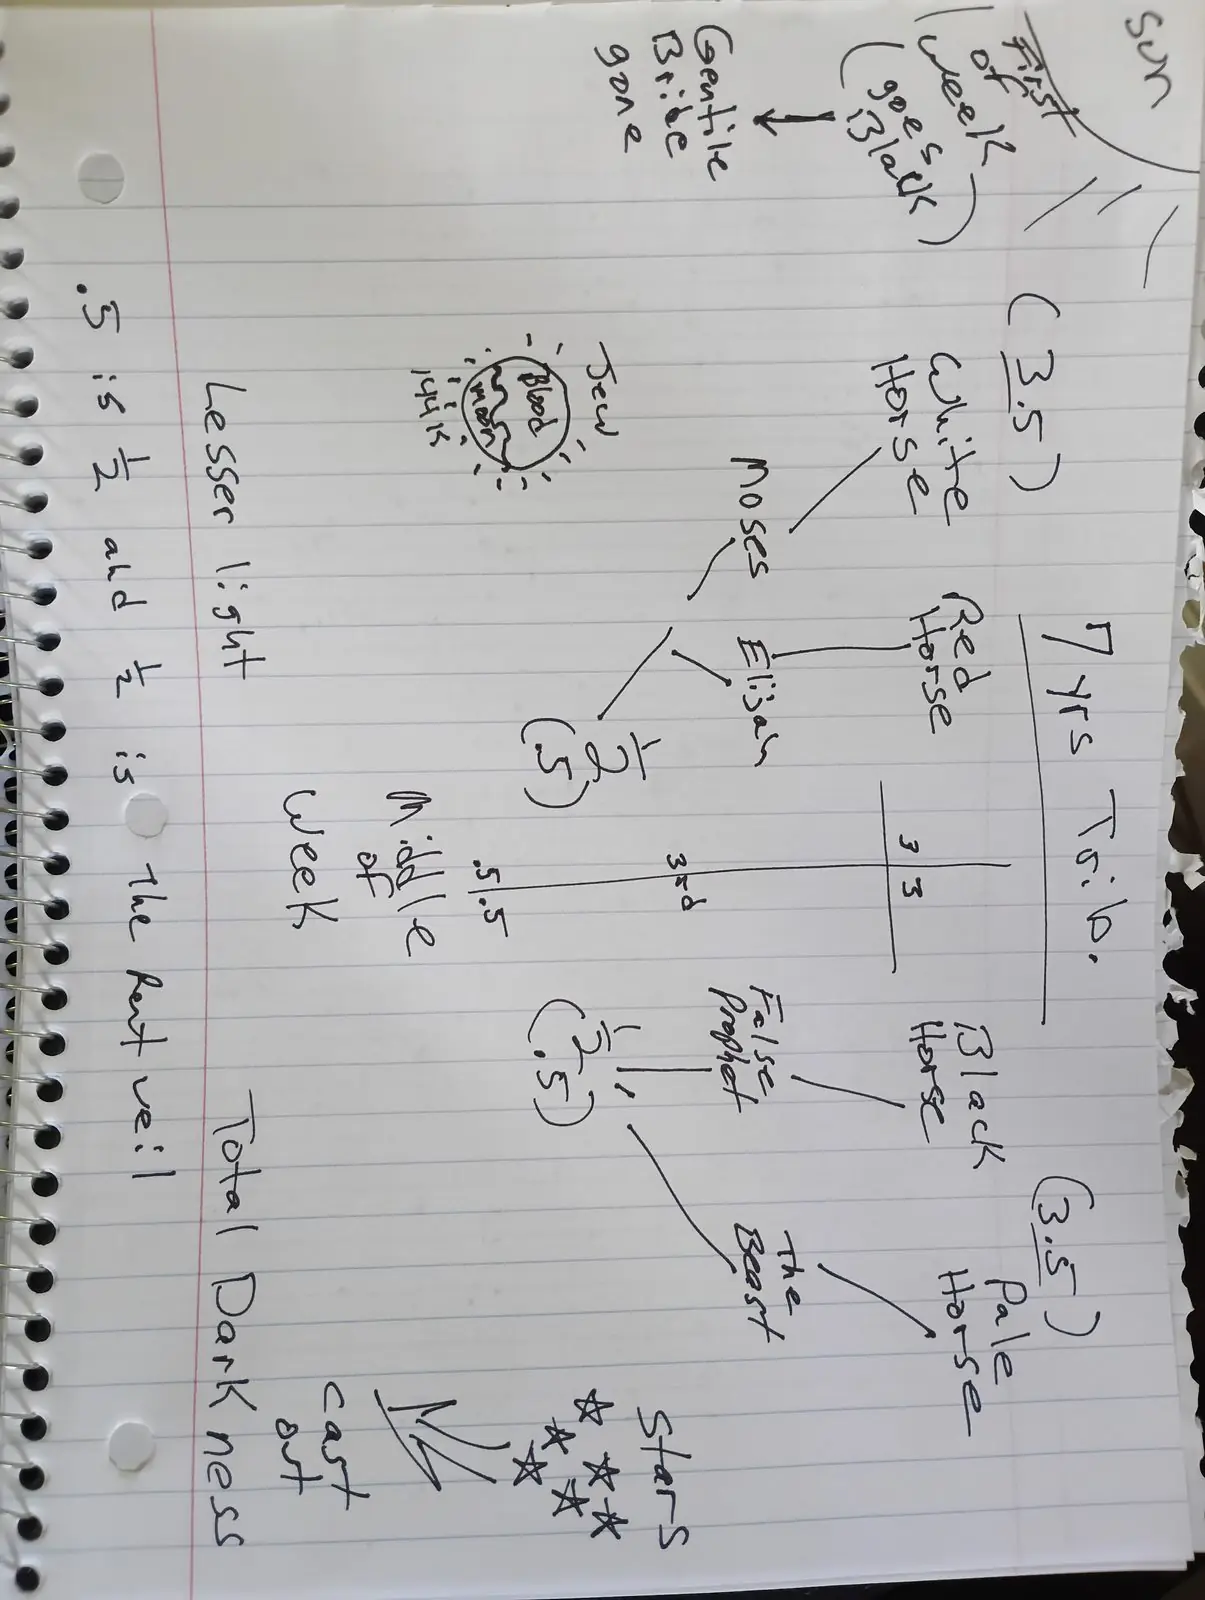 Sun
First
of
week
(goes
Black)
↓
Gentile
Bride
gone
7 yrs Trib.
(3.5)
White
Horse
Red
Horse
3 3
Black
Horse
(3.5)
Pale
Horse
Moses
Elijah
3rd
False
Prophet
The
Beast
Jew
Blood
moon
144K
1/2
(.5)
.5 .5
1/2
(.5)
Stars
Middle
of
Week
Cast
out
Lesser light
Total Darkness
.5 is 1/2 and 1/2 is The Rent veil